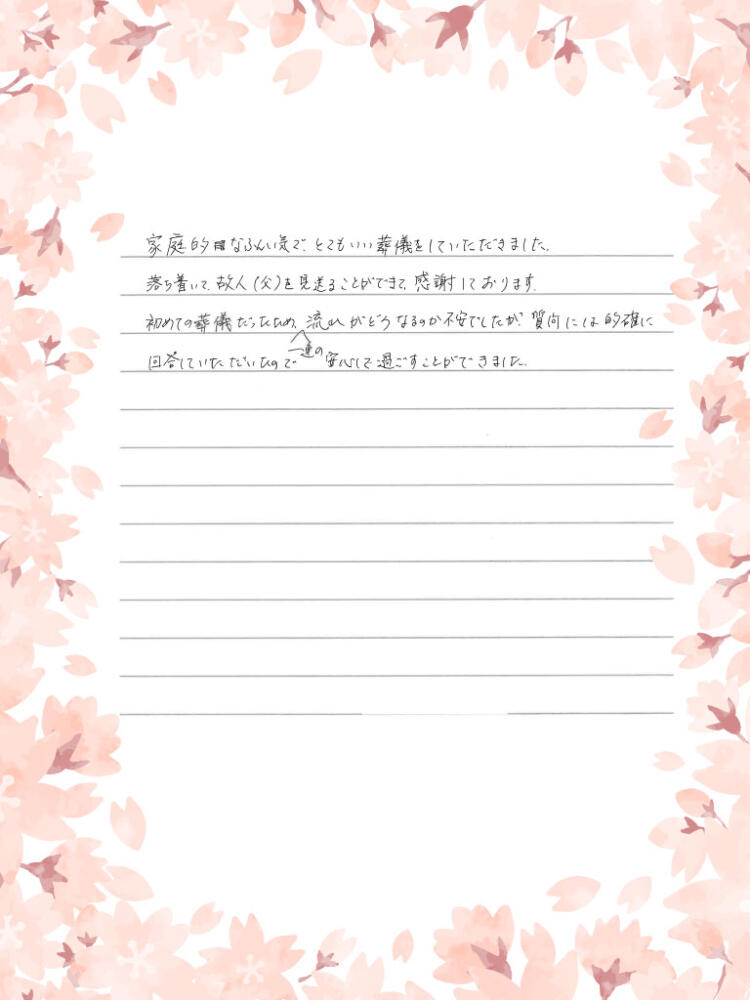 家庭的なふんい気で、とてもいい葬儀をしていただきました。
落ち着いて、故人(父)を見送ることができて、感謝しております。
初めての葬儀だったため、一連の流れがどうなるのか不安でしたが、質問には的確に
回答していただいたので安心して過ごすことができました。